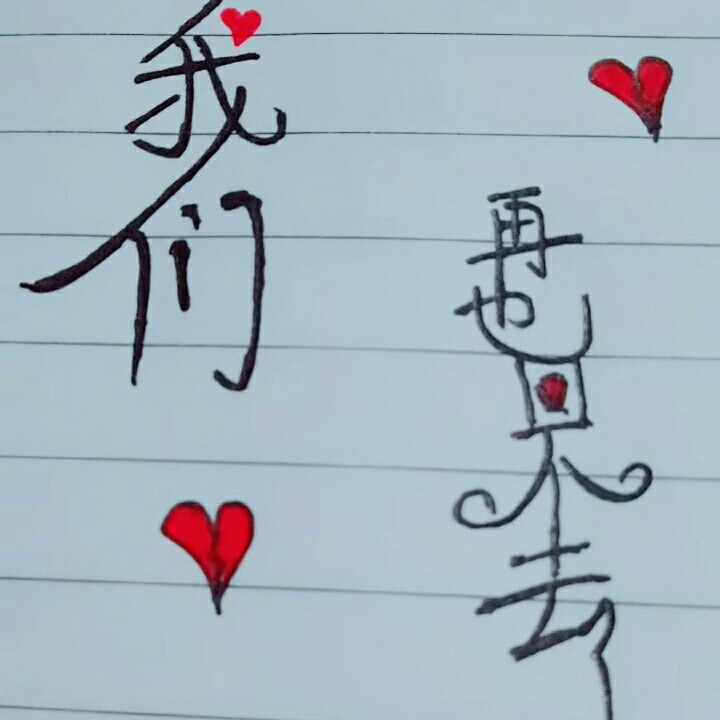 我们
再也回不去了